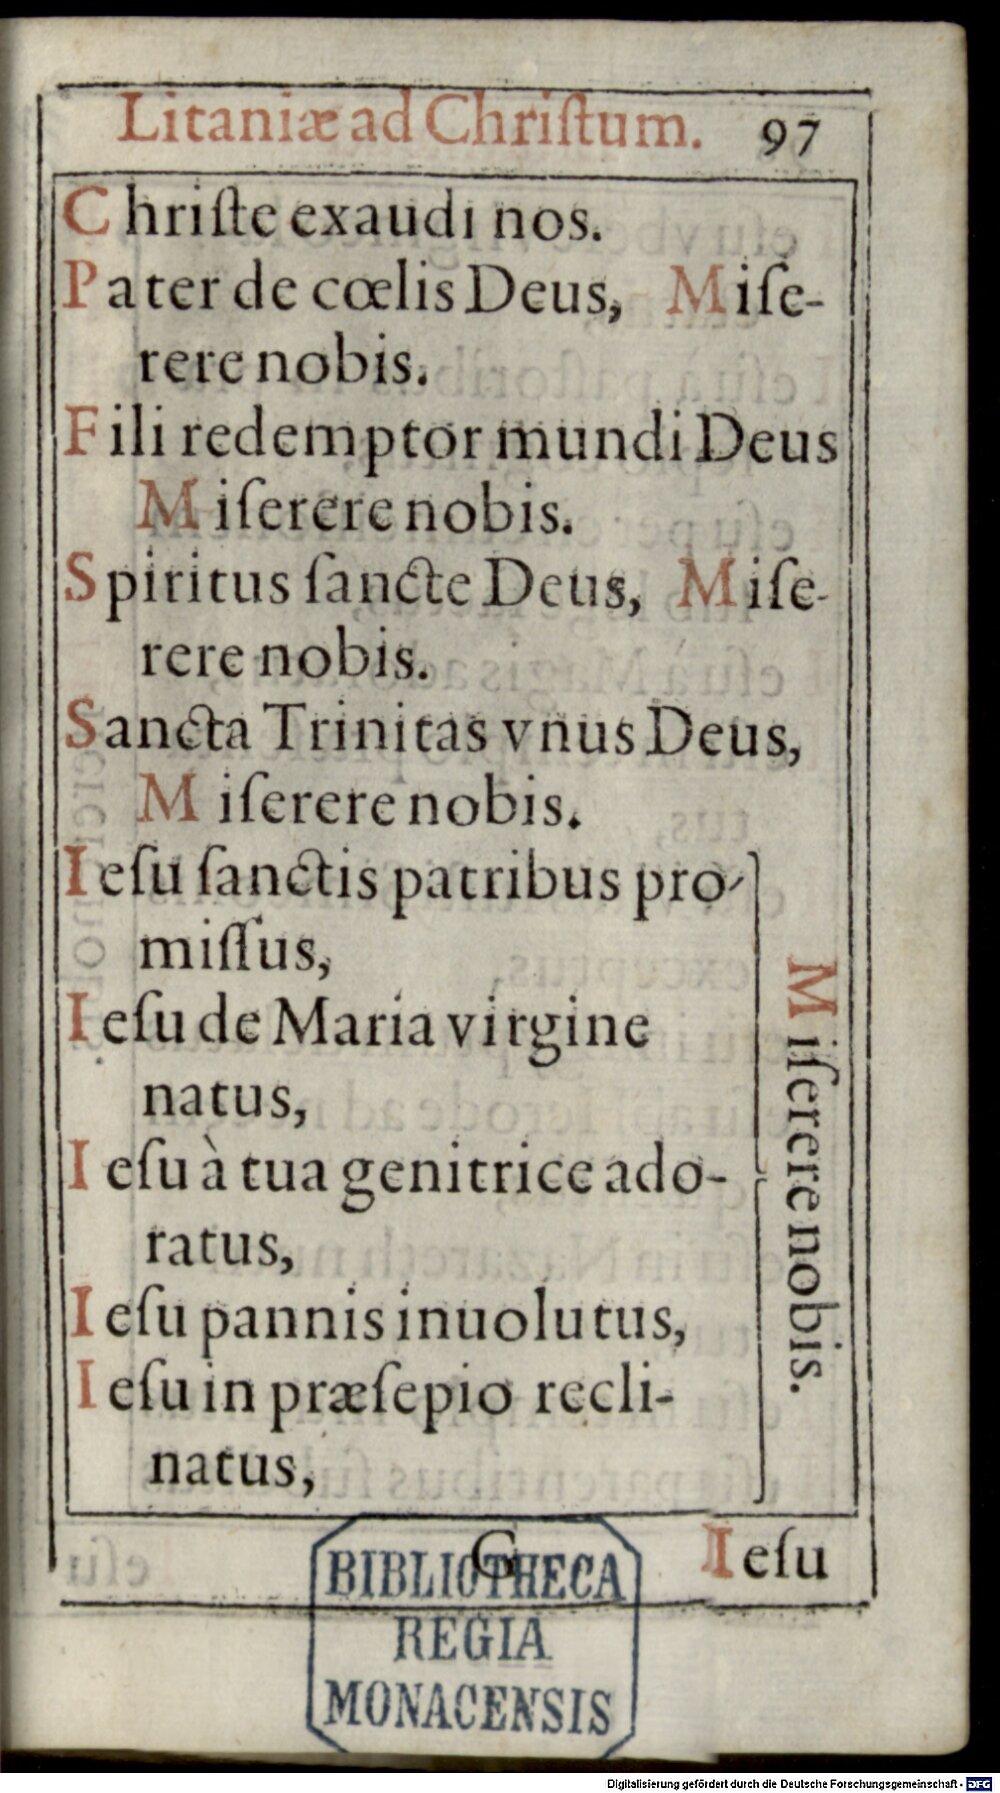 Litaniæ ad Chriſtum. 97
Chriſte exaudi nos.
Pater de cœlis Deus, Miſe-
rere nobis.
Fili redemptor mundi Deus
Miſerere nobis.
Spiritus ſancte Deus, Miſe-
rere nobis.
Sancta Trinitas vnus Deus,
Miſerere nobis.
Ieſu ſanctis patribus pro-
miſſus,
Ieſu de Maria virgine
natus,
Ieſu à tua genitrice ado-
ratus,
Ieſu pannis inuolutus,
Ieſu in præſepio recli-
natus,
Miſerere nobis.
G Ieſu
BIBLIOTHECA
REGIA
MONACENSIS
Digitalisierung gefördert durch die Deutsche Forschungsgemeinschaft - DFG